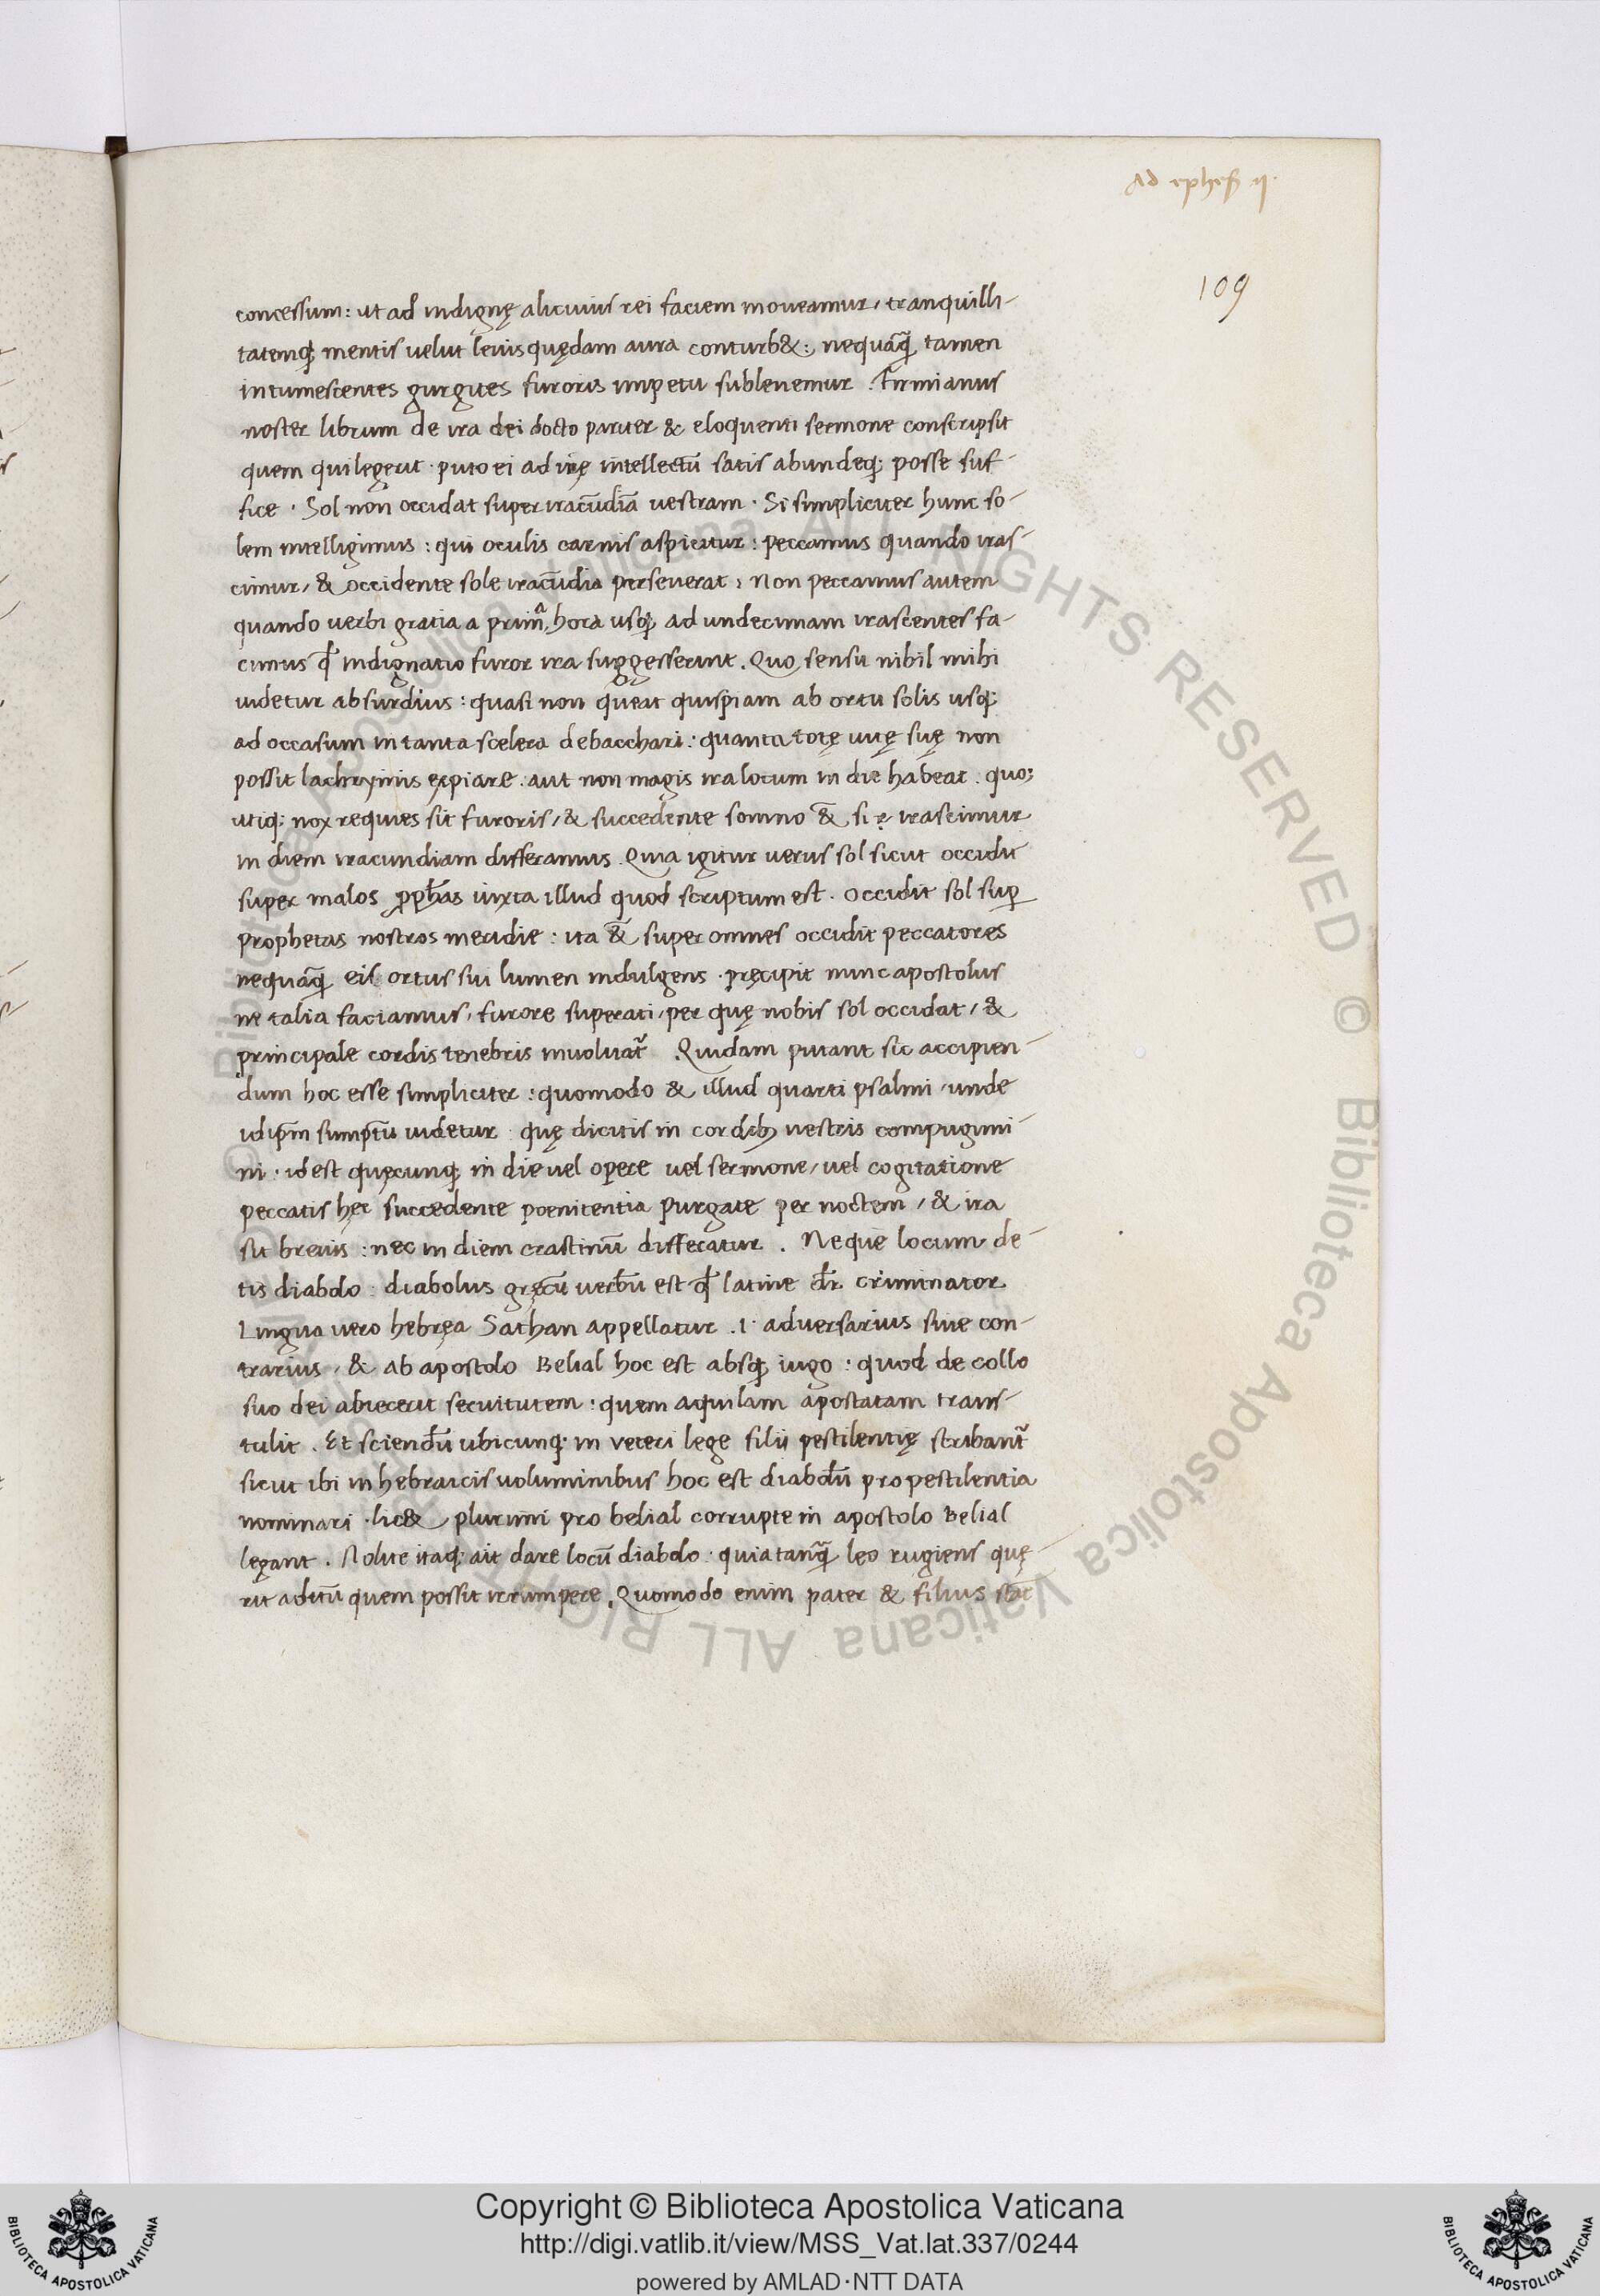 Ad ephes̄ ij.
109
concessum: ut ad indignę alicuius rei faciem moveamur, tranquilli-
tatemq; mentis uelut leuis quędam aura conturb&: nequāq̄ tamen
intumescentes gurgites furoris impetu subleuemur. Firmianus
noster librum de ira dei docto pariter & eloquenti sermone conscripsit
quem qui legerit · puto ei ad irę intellectū satis abundeq; posse suf-
fice · Sol non occidat super iracūdiā uestram · Si simpliciter hunc so-
lem intelligimus: qui oculis carnis aspicitur: peccamus quando iras-
cimur, & occidente sole iracūdia perseuerat: Non peccamus autem
quando uerbi gratia a prima hora usq; ad undecimam irascentes fa-
cimus qđ indignatio furor ira suggesserint. Quo sensu nihil mihi
uidetur absurdius: quasi non queat quispiam ab ortu solis usq;
ad occasum in tanta scelera debacchari: quanta totę uitę suę non
possit lachrymis expiare. aut non magis ira locum in die habeat. quo;
utiq; nox requies sit furoris, & succedente somno &̄ si ę irascimur
in diem iracundiam differamus. Quia igitur uerus sol sicut occidit
super malos ꝓph̄as iuxta illud quod scriptum est. Occidit sol suꝑ
prophetas nostros meridie: ita &̄ super omnes occidit peccatores
nequāq̄ eis ortus sui lumen indulgens · pręcipit nunc apostolus
ne talia faciamus, furore superati, per quę nobis sol occidat, &
principale cordis tenebris inuoluat᷑ Quidam putant sic accipien-
dum hoc esse simpliciter: quomodo & illud quarti psalmi, unde
idip̄m sumptū uidetur · quę dicitis in cordib; uestris compugimi-
ni · id est quęcunq; in die uel opere uel sermone, uel cogitatione
peccatis hęc succedente poenitentia purgate per noctem, & ira
sit breuis: nec in diem crastinū differatur. Neque locum de-
tis diabolo: diabolus gręcū uerbū est qđ latine dr̄ criminator
Lingua uero hebręa Sathan appellatur .i. aduersarius siue con-
trarius, & ab apostolo Belial hoc est absq; iugo: quod de collo
suo dei abiecerit seruitutem: quem aquilam apostatam trans-
tulit. Et sciendū ubicunq; in veteri lege filii pestilentię scribant᷑
sicut ibi in hebraicis uoluminibus hoc est diabolū pro pestilentia
nominari · lic& plurimi pro belial corrupte in apostolo Belial
legant. Nolite itaq; ait dare locū diabolo: quia tanq̄ leo rugiens quę-
rit aditū quem possit irrumpere. Quomodo enim pater & filius
Copyright © Biblioteca Apostolica Vaticana
http://digi.vatlib.it/view/MSS_Vat.lat.337/0244
powered by AMLAD·NTT DATA
BIBLIOTECA APOSTOLICA VATICANA
BIBLIOTECA APOSTOLICA VATICANA
© Biblioteca Apostolica Vaticana ALL RIGHTS RESERVED © Biblioteca Apostolica Vaticana ALL RIGHTS RESERVED